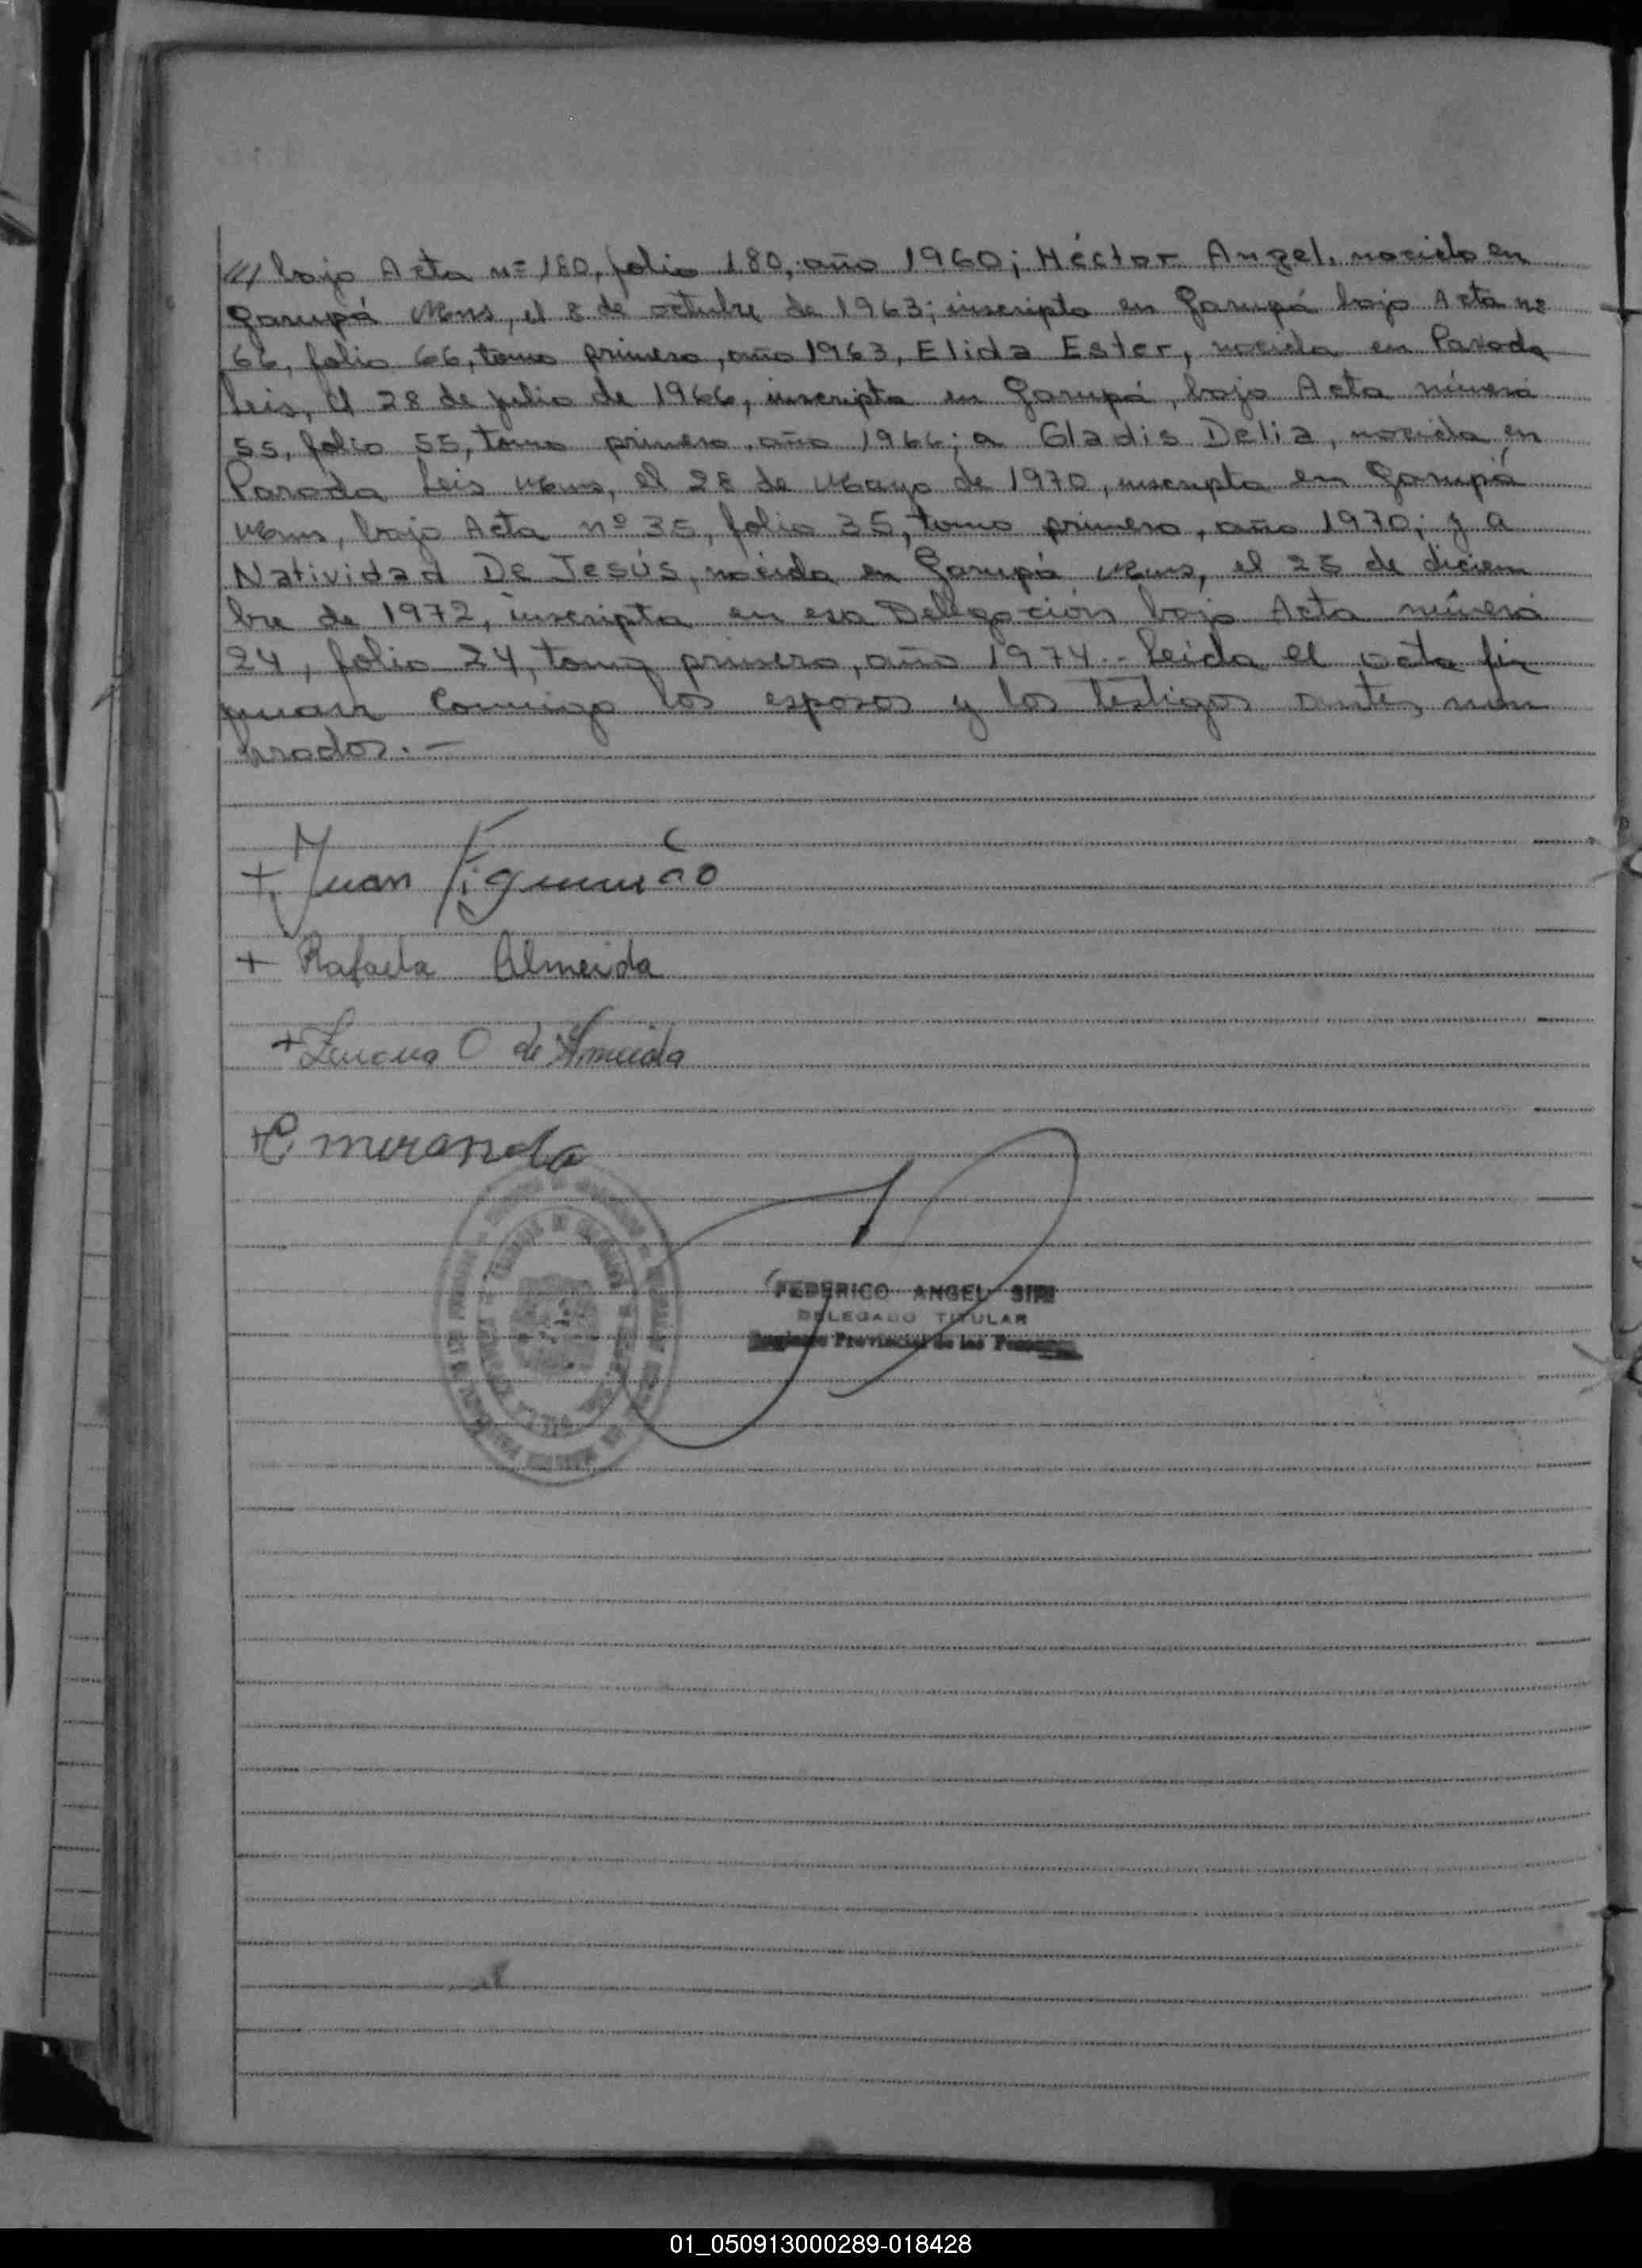 /// bajo Acta nº 180, folio 180, año 1960; Héctor Angel, nacido en
Garupá Mnes, el 8 de octubre de 1963; inscripto en Garupá bajo Acta nº
66, folio 66, tomo primero, año 1963, Elida Ester, nacida en Parada
Leis, el 28 de julio de 1966, inscripta en Garupá, bajo Acta número
55, folio 55, tomo primero, año 1966; a Gladis Delia, nacida en
Parada Leis Mnes, el 28 de Mayo de 1970, inscripta en Garupá
Mnes, bajo Acta nº 35, folio 35, tomo primero, año 1970; y a
Natividad De Jesús, nacida en Garupá Mnes, el 25 de diciem
bre de 1972, inscripta en esa Delegación bajo Acta número
24, folio 24, tomo primero, año 1974.- Leida el acta fir
man conmigo los esposos y los testigos antes nom
brados.-
+ Juan
+ Rafaela Almeida
+ O de Almeida
+ C miranda
FEDERICO ANGEL SIRI
DELEGADO TITULAR
Registro Provincial de las Personas
01_050913000289-018428